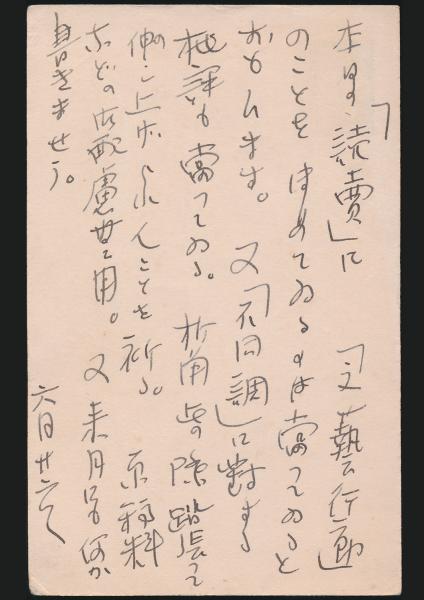 本日の「読賣」に 「文藝行動」
のことをほめてゐるのは當つてゐると
おもひます。 又「不同調」に對する
批評も當つてゐる。 折角此の際踏張つて
御向上あらんことを祈る。 原稿料
などの御配慮無用。 又来月にも何か
書きませう。
六月廿六日